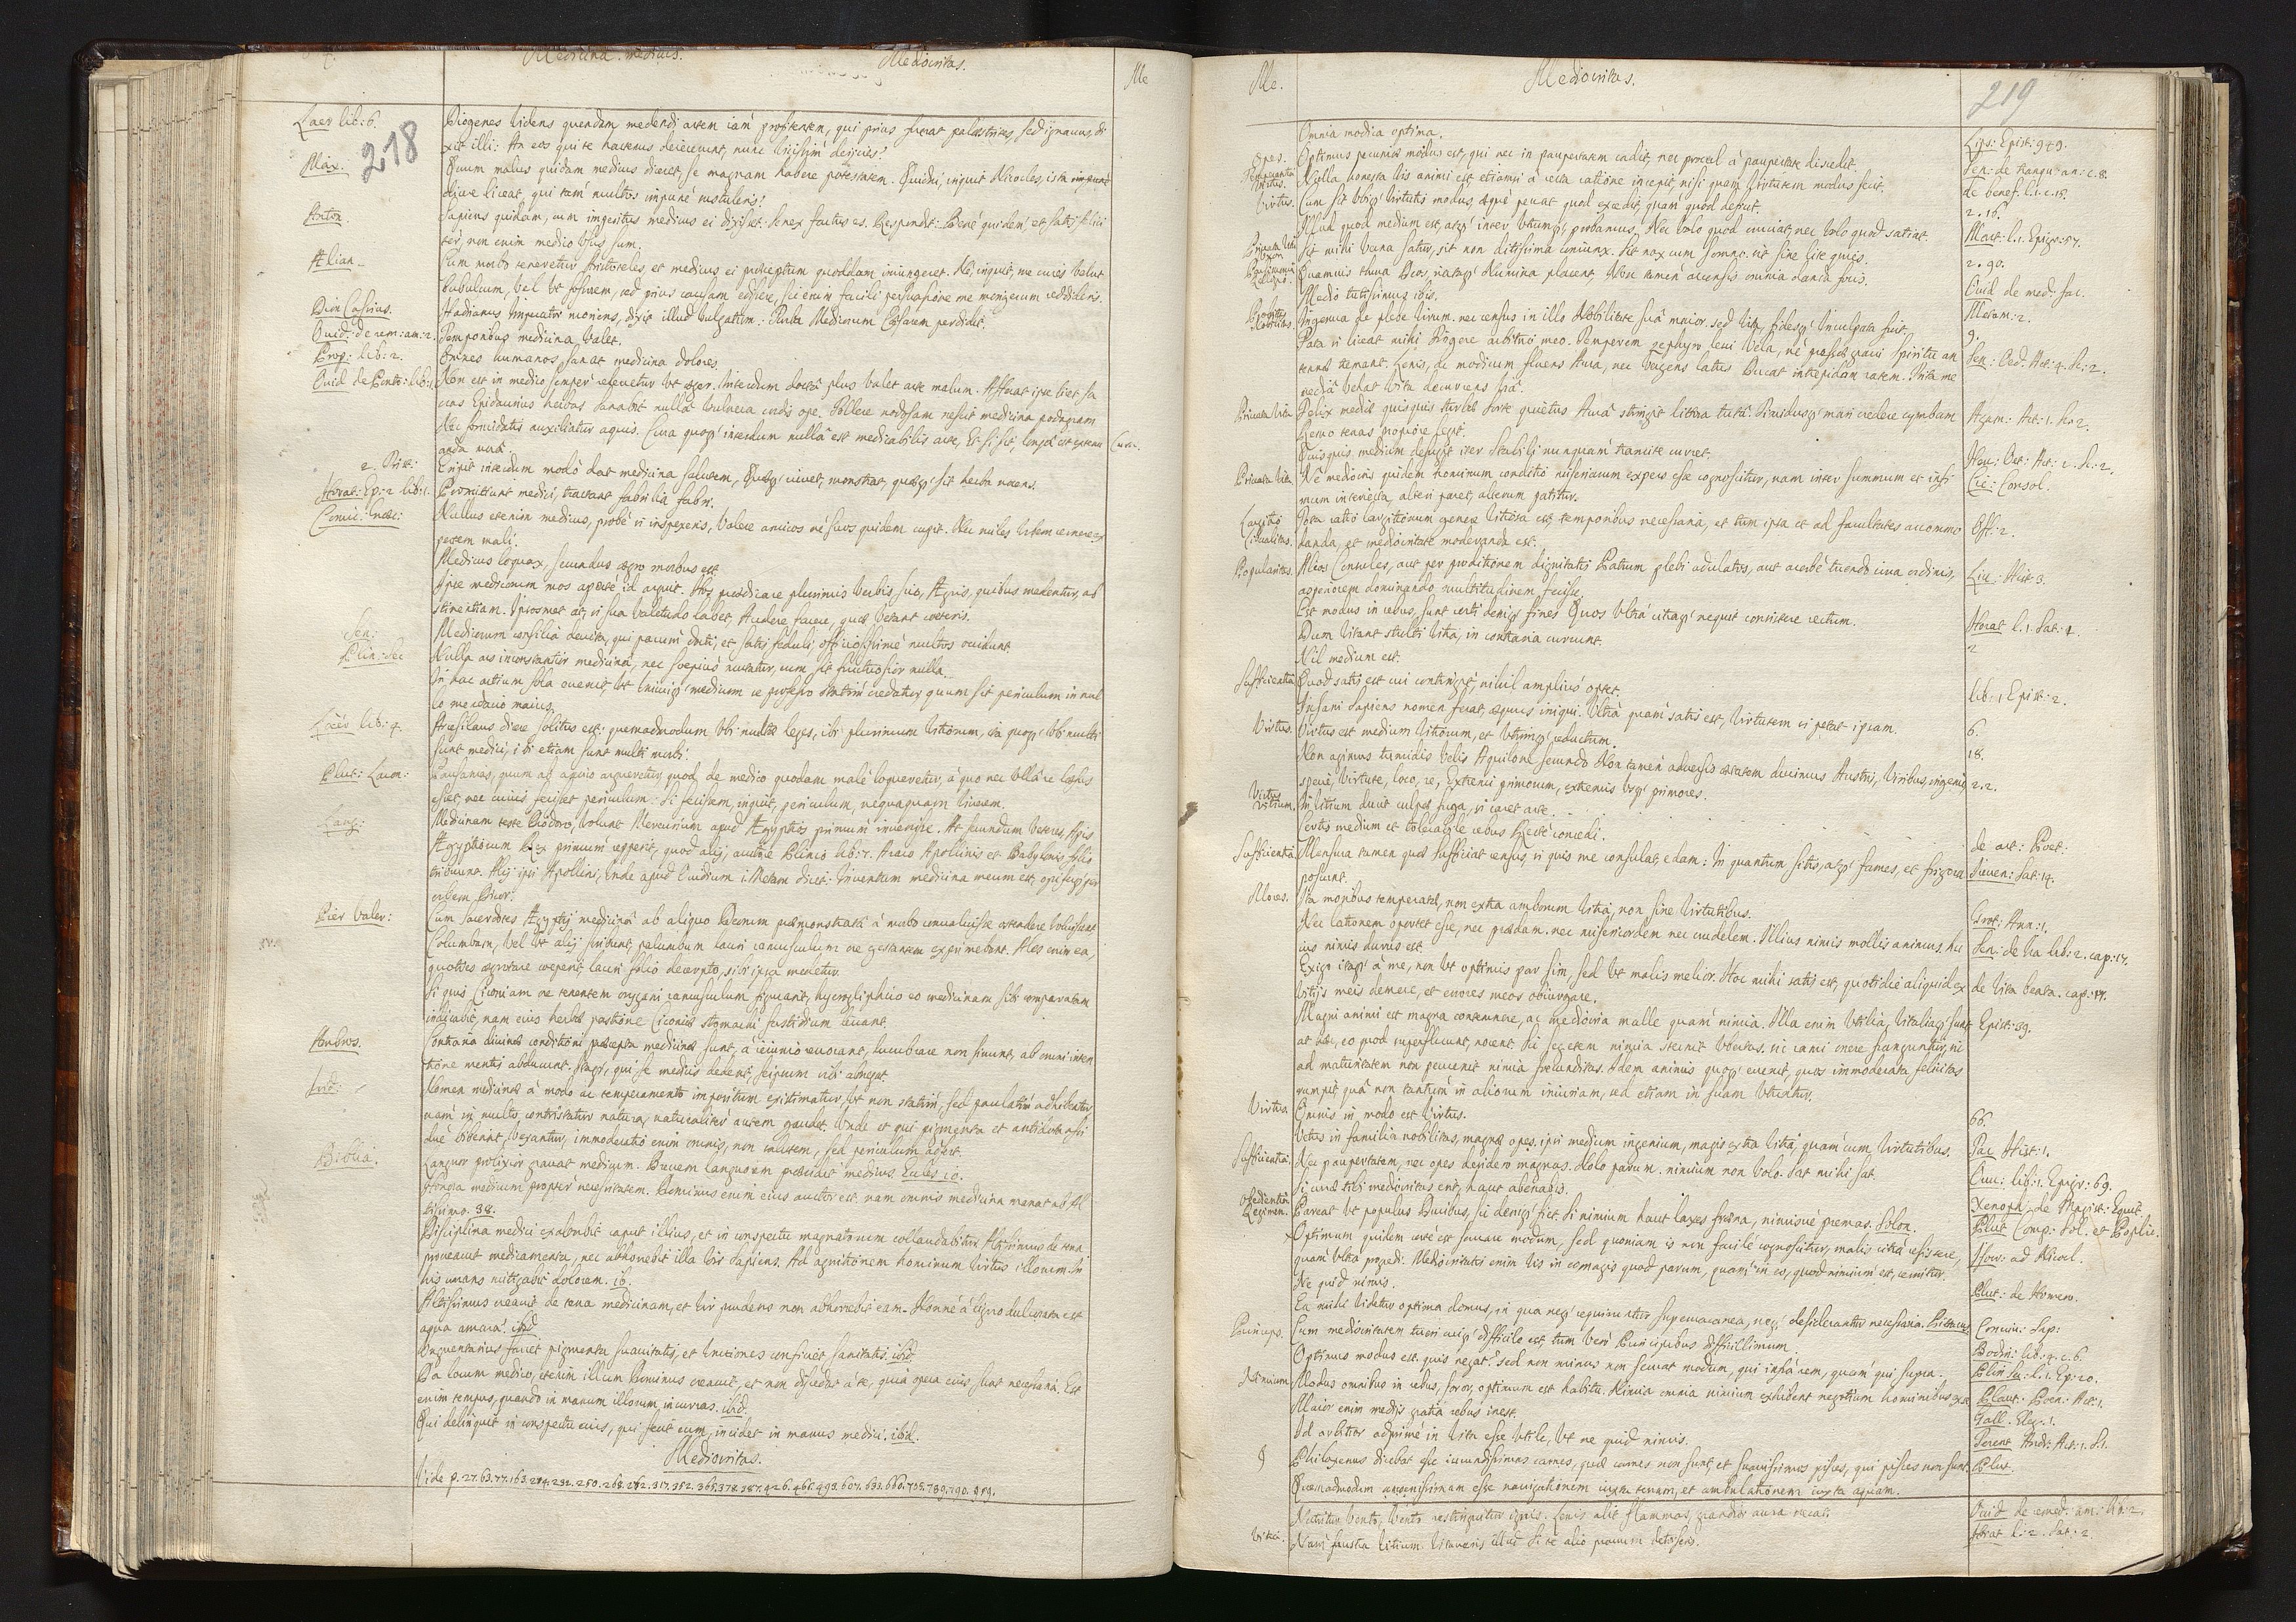 Medicina. medicus.
Mediocritas.
Me
218
Laer lib: 6.
Diogenes videns quendam medendi artem iam profitentem, qui prius fuerat palæstrites, sed ignavus, di
xit illi: An eos qui te hactenus deiecerunt, nunc vicissim deijcies?
Max.
Quum malus quidam medicus diceret, se magnam habere potestatem. Quidni, inquit Nicocles, ista
liceat, qui tam multos impunè sustuleris?
Anton.
Sapiens quidam, cum ingestus medicus ei dixisset: Senex factus es. Respondit: Benè quidem et satis felici
ter, non enim medico usus sum.
Ælian
Cum morbo teneretur Aristoteles, et medicus ei præceptum quoddam iniungeret. Ne, inquit, me cures velut
bubulcum, vel ut fossorem, sed prius causam edissere, sic enim facili persuasione me morigerum reddideris.
Dion Cassius.
Hadrianus Imperator moriens, dixit illud vulgatum: Turba Medicorum Cæsarem perdidit.
Ovid: de rem: am: 2.
Temporibus medicina valet.
Prop: lib: 2.
Omnes humanos sanat medicina dolores.
Ovid de Ponto: lib: 1.
Non est in medico semper relevetur ut æger. Interdum docta plus valet arte malum. Afferat ipse licet sa
cras Epidaurius herbas Sanabit nulla vulnera cordis ope. Tollere nodosam nescit medicina podagram
Nec formidatis auxiliatur aquis. Cura quoq' interdum nulla est medicabilis arte, Et si sit, longa est extenu
Cura.
anda mora.
2. Trist:
Eripit interdum modò dat medicina salutem, Quæq' iuvet, monstrat, quæq' sit herba nocens.
Horat: Ep: 2 lib: 1.
Promittunt medici, tractant fabrilia fabri.
Comic: vet:
Nullus etenim medicus, probè si inspexeris, Valere amicos nè suos quidem cupit. Nec miles Urbem cernere ex
pertem mali.
Medicus loquax, secundus ægro morbus est.
Ipse medicorum mos apertè id arguit. Hos prædicare plurimis verbis suis, Ægris, quibus medentur, ab
stinentiam. Ipsosmet at, si sua valetudo labet, Audere facere, quæ vetant cæteris.
Sen:
Medicorum consilia devita, qui parum docti, et satis seduli, officiosissimè multos occidunt
Plin: Sec
Nulla ars inconstantior medicina, nec sæpius mutatur, cum sit fructuosior nulla.
In hac artium sola evenit, ut unicuiq' medicum se professo statim credatur quum sit periculum in nul
lo mendacio maius.
Laër lib: 4.
Arcesilaus dicere solitus est: quemadmodum ubi multæ leges, ibi plurimum vitiorum, ita quoq' ubi multi
sunt medici, ibi etiam sunt multi morbi.
Plut: Lacon:
Pausanias, quum ab aliquo argueretur, quod de medico quodam malè loqueretur, à quo nec ulla re læsus
esset, nec cuius fecisset periculum: Si fecissem, inquit, periculum, nequaquam viverem.
Lang:
Medicinam teste Diodoro, volunt Mercurium apud Ægyptios primum invenisse. At secundum Veteres, Apis
Ægyptiorum Rex primum repperit, quod alij, auctore Plinio lib: 7. Arabo Apollinis et Babylonis filio
tribuunt. Alij ipsi Apollini, Unde apud Ovidium i. Metam dicit: Inventum medicina meum est, opiferq' per
orbem Dicor.
Pier Valer:
Cum sacerdotes Ægyptij medicina ab aliquo Deorum præmonstrata à morbo convaluisse ostendere voluissent
Columbam, vel ut alij scribunt, palumbum lauri ramusculum ore gestantem exprimebant. Ales enim ea,
quoties ægrotare coeperit, lauri folio decerpto, sibi ipsa medetur.
Si quis Ciconiam ore tenentem origani ramusculum figurarit, hyeroglyphico eo medicinam sibi comparatam
indicabit, nam eius herbæ pastione Ciconiæ stomachi fastidium levant.
Ambros.
Contraria divinæ conditioni præcepta medicinæ sunt, à ieiunio revocant, lucubrare non sinunt, ab omni inten
tione mentis abducunt. Itaq', qui se medicis dederit, seipsum sibi abneget.
Isid:
Nomen medicinæ à modo ac temperamento impositum existimatur, ut non statim, sed paulatim adhibeatur
nam in multo contristatur natura, naturaliter autem gaudet. Unde et qui pigmenta et antidota assi
duè biberint, vexantur, immoderatio enim omnis, non salutem, sed periculum adfert.
Biblia.
Languor prolixior gravat medicum. Brevem languorem præcidit medicus. Eccles 10.
Honora medicum propter necessitatem. Dominus enim eius auctor est, nam omnis medicina manat ab Al
tissimo. 38.
Disciplina medici exaltabit caput illius, et in conspectu magnatorum collaudabitur. Altissimus de terra
procreavit medicamenta, nec abhorrebit illa vir sapiens. Ad agnitionem hominum virtus illorum. In
his curans mitigabit dolorem. ib.
Altissimus creavit de terra medicinam, et vir prudens non abhorrebit eam. Nonnè à ligno dulcorata est
aqua amara? ibid
Unguentarius faciet pigmenta suavitatis, et unctiones conficiet sanitatis. ibid.
Da locum medico, etenim illum Dominus creavit, et non discedat à te, quia opera eius sunt necessaria. Est
enim tempus, quando in manum illorum incurras. ibid.
Qui delinquit in conspectu eius, qui fecit eum, incidet in manus medici. ibid.
Mediocritas.
Vide p. 27. 63. 77. 163. 232. 250. 268. 317. 352. 365. 378. 387. 426. 465. 493. 607. 633. 660. 705. 789. 790.
Me.
Mediocritas.
219
Omnia modica optima.
Lips: Epist: 949.
Opes.
Optimus pecuniæ modus est, qui nec in paupertatem cadit, nec procul à paupertate discedit.
Sen: de tranqu: an: c. 8.
Nulla honesta vis animi est etiamsi à recta ratione incepit, nisi quam virtutem modus fecit.
de benef. l. 1. c. 15.
Virtus.
Cum sit ubiq' virtutis modus, æquè peccat quod excedit, quam quod deficit.
2. 16.
Illud quod medium est, atq' inter utrumq', probamus. Nec volo quod cruciat, nec volo quod satiat.
Mart: l. 1. Epigr: 57.
Privata vita
Uxor
Sit mihi verna satur, sit non doctissima coniunx. Sit nox cum somno. sit sine lite dies.
2. 90.
Quamvis thura Deos, irataq' Numina placent, Non tamen accensis omnia danda focis.
Ovid de med: fac.
Medio tutissimus ibis.
Metam: 2.
Probitas
Ingenua de plebe virum. nec census in illo Nobilitate sua maior. sed vita, fidesq' Inculpata fuit.
9.
Fata si liceat mihi Fingere arbitrio meo. Temperem zephyro levi vela, nè pressæ gravi spiritu an
Sen: Oed. Act: 4. Sc: 2.
tennæ tremant. Lenis, et modicum fluens Aura, nec vergens latus Ducat intrepidam ratem. Tuta me
media vehat vita decurrens via.
Privata Vita
Felix mediæ quisquis turbæ sorte quietus Aura stringit littora tuta. Timidusq' mari credere cymbam
Agam: Act: 1. Sc. 2.
Remo terras propiore legit.
Quisquis medium defugit iter Stabili nunquam tramite curret.
Herc: Oet: Act: 2. Sc: 2.
Privata vita
Nè mediocris quidem hominum conditio miseriarum expers esse cognoscitur, nam inter summum et infi
Cic: Consol.
mum interiecta, alteri paret, alterum patitur.
Largitio
Liberalitas.
Tota ratio largitionum genere vitiosa est, temporibus necessaria, et tum ipsa et ad facultates accommo
Off: 2.
danda, et mediocritate moderanda est.
Popularitas.
Alios Consules, aut per proditionem dignitatis Patrum plebi adulatos, aut acerbè tuendo iura ordinis,
Liv: Hist 3.
asperiorem domando multitudinem fecisse.
Est modus in rebus, sunt certi deniq' fines Quos ultra citraq' nequit consistere rectum.
Horat l. 1. Sat: 1.
Dum vitant stulti vitia, in contraria currunt.
2
Nil medium est.
Sufficientia
Quod satis est cui contingit, nihil amplius optet.
lib: 1 Epist: 2.
Insani sapiens nomen ferat, æquus iniqui. Ultra quam satis est, virtutem si petat ipsam.
6.
Virtus.
Virtus est medium vitiorum, et utrimq' reductum.
18.
Non agimur tumidis velis Aquilone secundo Non tamen adversis ætatem ducimus Austris, Viribus, ingenio
2. 2.
specie, virtute, loco, re, Extremi primorum, extremis usq' priores.
Virtus
vitium.
In vitium ducit culpæ fuga, si caret arte.
Certis medium et tolerabile rebus Rectè concedi.
de art: Poet:
Sufficientia
Mensura tamen quæ sufficiat census, si quis me consulat, edam: In quantum sitis, atq' fames, et frigora
Juven: Sat: 14.
poscunt.
Mores.
Ita moribus temperatis, non extra amborum vitia, non sine virtutibus.
Nec latronem oportet esse, nec prædam. nec misericordem nec crudelem. Illius nimis mollis animus, hu
Sen: de Ira lib: 2. cap: 17.
ius nimis durus est.
Exigo itaq' à me, non ut optimis par sim, sed ut malis melior. Hoc mihi satis est, quotidie aliquid ex
de vita beata. cap: 17.
vitijs meis demere, et errores meos obiurgare.
Magni animi est magna contemnere, ac mediocria malle quàm nimia. Illa enim utilia, vitaliaq' sunt
Epist: 39.
at hæc, eo quod superfluunt, nocent. Sic segetem nimia sternit ubertas. sic rami onere franguntur, sic
ad maturitatem non pervenit nimia foecunditas. Idem animis quoq' evenit, quos immoderata felicitas
rumpit, qua non tantum in aliorum iniuriam, sed etiam in suam utuntur.
Virtus.
Omnis in modo est virtus.
66.
Vetus in familia nobilitas, magnæ opes. ipsi medium ingenium, magis extra vitia, quam cum virtutibus.
Tac Hist: 1.
Sufficientia.
Nec paupertatem, nec opes desidero magnas. Nolo parum. nimium non volo. Sat mihi sat.
Owen: lib: 1. Epigr: 69.
Si curæ tibi mediocritas erit, haut aberrabis.
Xenoph: de Magist: Equit.
Obedientia
Regimen.
Pareat ut populus Ducibus, sic deniq' fiet Si nimium haut laxes fræna, nimisuè premas. Solon.
Plut Comp: Sol. et Poplic.
Optimum quidem certè est servare modum, sed quoniam is non facilè cognoscitur, malis citra resistere,
Isocr: ad Nicocl.
quam ultra progredi. Mediocritatis enim vis in eo magis quod parum, quam in eo, quod nimium est, cernitur.
Ne quid nimis.
Plut: de Homero.
Ea mihi videtur optima domus, in qua neq' requiruntur supervacanea, neq' desiderantur necessaria. Pittacus
Conviv: Sap:
Princeps.
Cum mediocritatem tueri cuiq' difficile est, tum vero Principibus difficillimum.
Bodin: lib: 4. c. 6.
Optimus modus est. quis negat? sed non minus non servat modum, qui infra rem, quàm qui supra.
Plin Su: l. 1. Ep: 20.
Modus omnibus in rebus, soror, optimum est habitu. Nimia omnia nimium exhibent negotium hominibus ex se
Plaut: Poen: Act: 1.
Maior enim medijs gratia rebus inest.
Gall. Eleg: 1.
Id arbitror adprimè in vita esse utile, ut ne quid nimis.
Terent Andr: Act: 1. S. 1.
Philoxenus dicebat esse iucundissimas carnes, quæ carnes non sunt, et suavissimos pisces, qui pisces non sunt.
Plut.
Quemadmodum amoenissimam esse navigationem iuxta terram, et ambulationem iuxta aquam.
Nutritur vento, vento restinguitur ignis. Lenis alit flammas, grandior aura necat.
Ovid de remed: am: lib: 2.
Vitia.
Nam frustra vitium vitaveris illud Si te alio pravum detorseris.
Horat l: 2. Sat: 2.